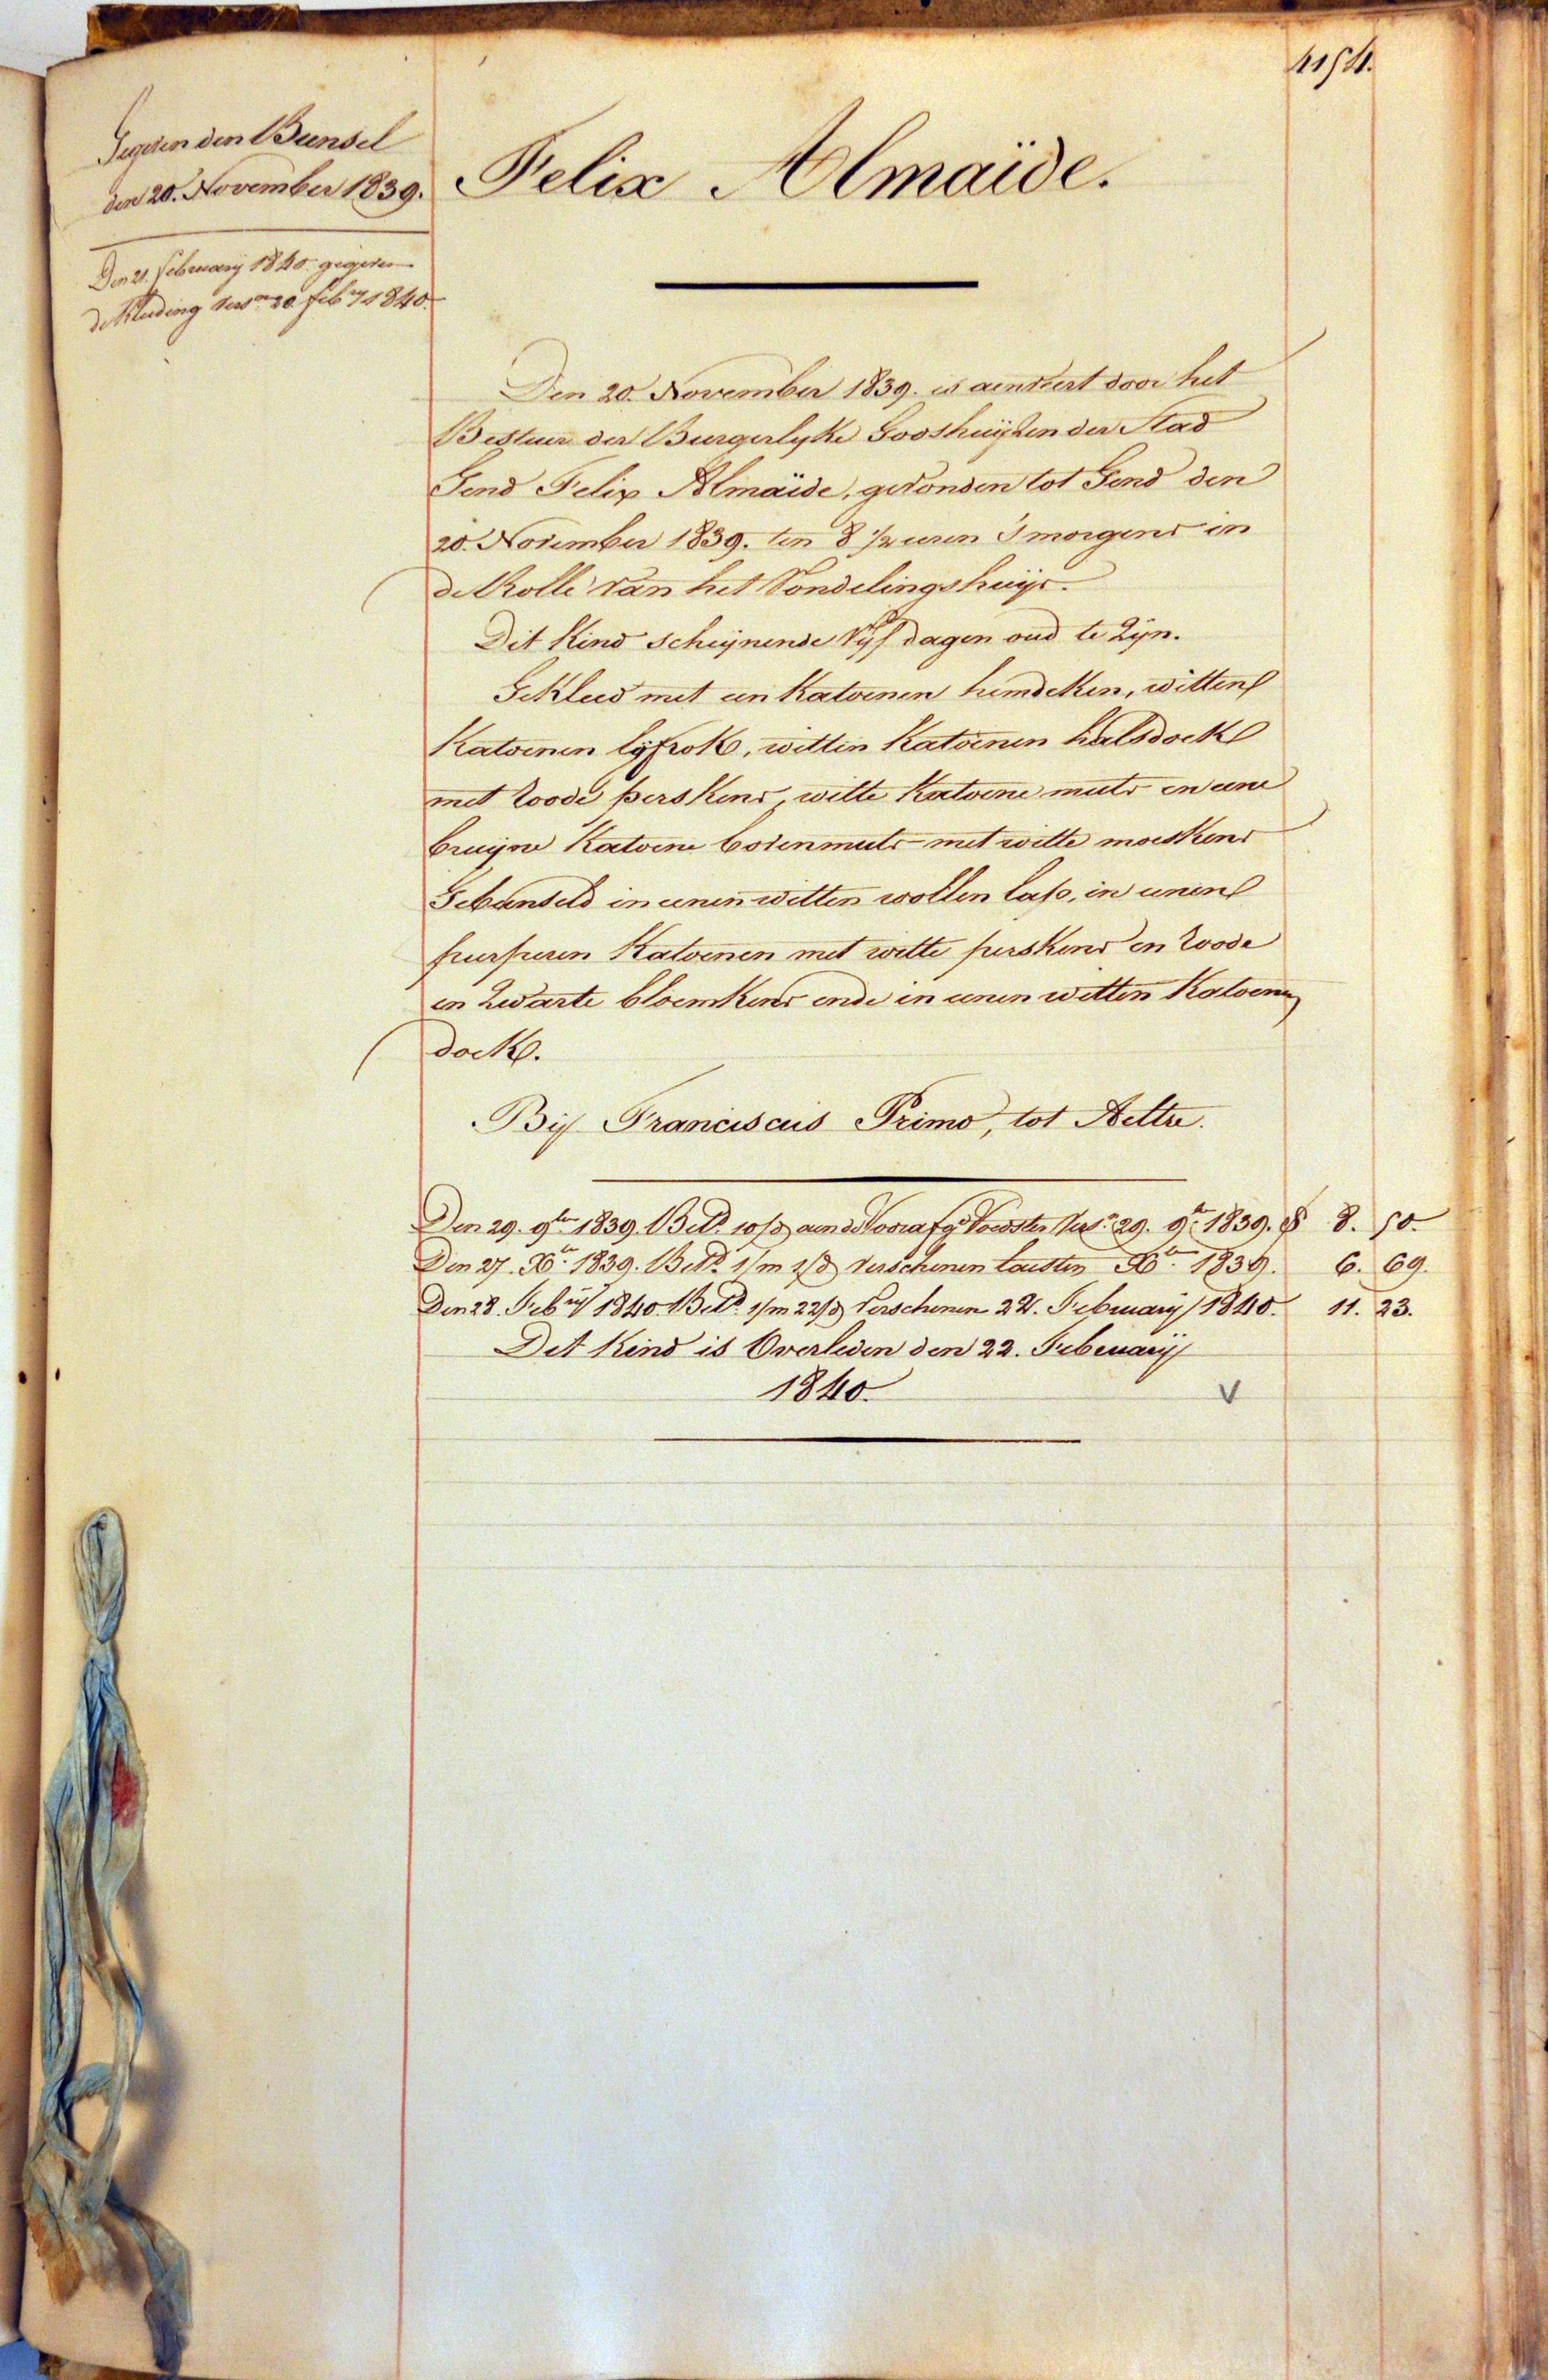 4154.
Gegeven den Bunsel
den 20. November 1839.
Den 21. february 1840. gegeven
de kleeding versn 20. feby 1840.
Felix Almaïde.
Den 20. November 1839. is aenveert door het
Bestuer der Burgerlyke Godshuyzen der Stad
Gend Felix Almaïde, gevonden tot Gend den
20. November 1839. ten 8 1/2 uren 's morgens in
de Rolle van het Vondelingshuys.
Dit Kind schynende Vyf dagen oud te Zyn.
Gekleed met een Katoenen hemdeken, witten
Katoenen lyfrok, witten Katoenen halsdoek
met roode perskens, witte Katoene muts en eene
bruyne Katoene bovenmuts met witte moeskens
Gebunseld in eenen witten wollen lap, in eenen
purperen Katoenen met witte perskens en roode
en Zwarte bloemkens ende in eenen witten Katoenen
doek.
By Franciscus Primo, tot Aeltre.
Den 29. 9br 1839. Betd. 10/d aen de Voorafgde Voedster Vers. 29. 9br 1839. 8. 50.
Den 27. Xbr 1839. Betd. 1/m 2/d verschenen laesten Xbr 1839. 6. 69.
Den 28. Feby 1840. Betd. 1/m 22/d Verschenen 22. February 1840. 11. 23.
Dit Kind is Overleden den 22. February
1840. V